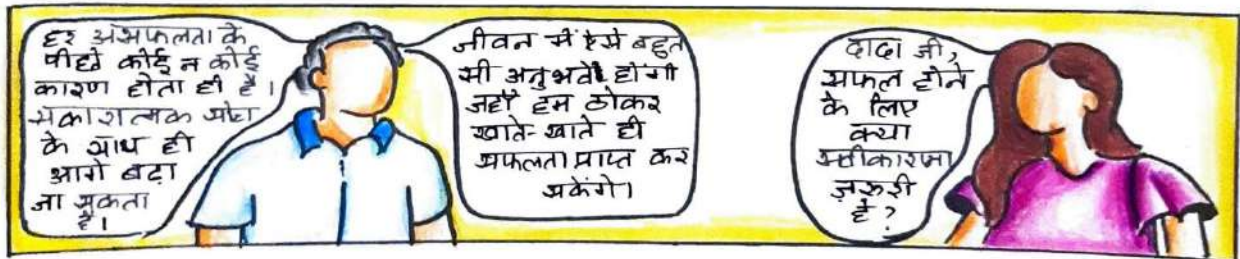 हर असफलता के
पीछे कोई न कोई
कारण होता ही है।
सकारात्मक सोच
के साथ ही
आगे बढ़ा
जा सकता
है।
जीवन में ऐसे बहुत
सी अनुभवें होंगी
जहाँ हम ठोकर
खाते-खाते ही
सफलता प्राप्त कर
सकेंगे।
दादा जी,
सफल होने
के लिए
क्या
स्वीकारना
ज़रूरी
है?